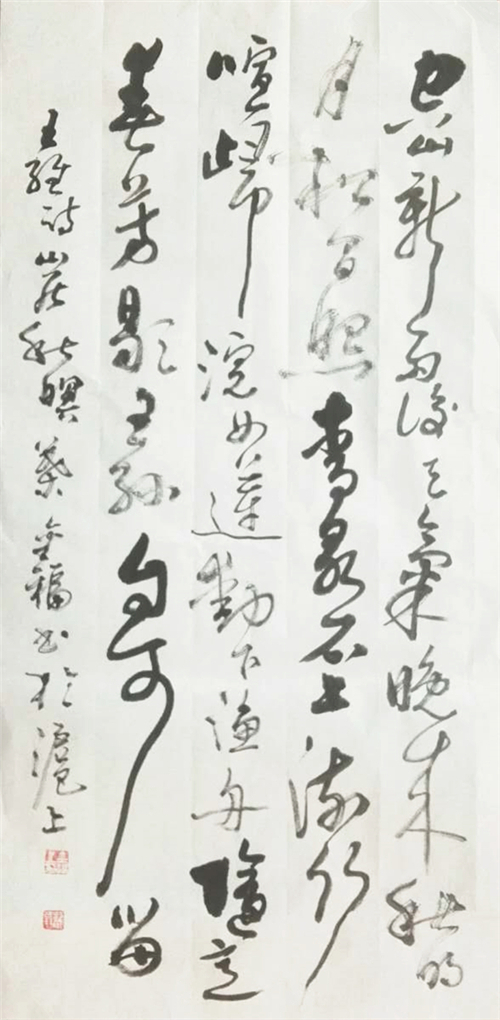 空山新雨後天氣晚來秋明
月松間照清泉石上流竹
喧歸浣女蓮動下漁舟隨意
春芳歇王孫自可留
王維詩山居秋暝葉金福書於滬上